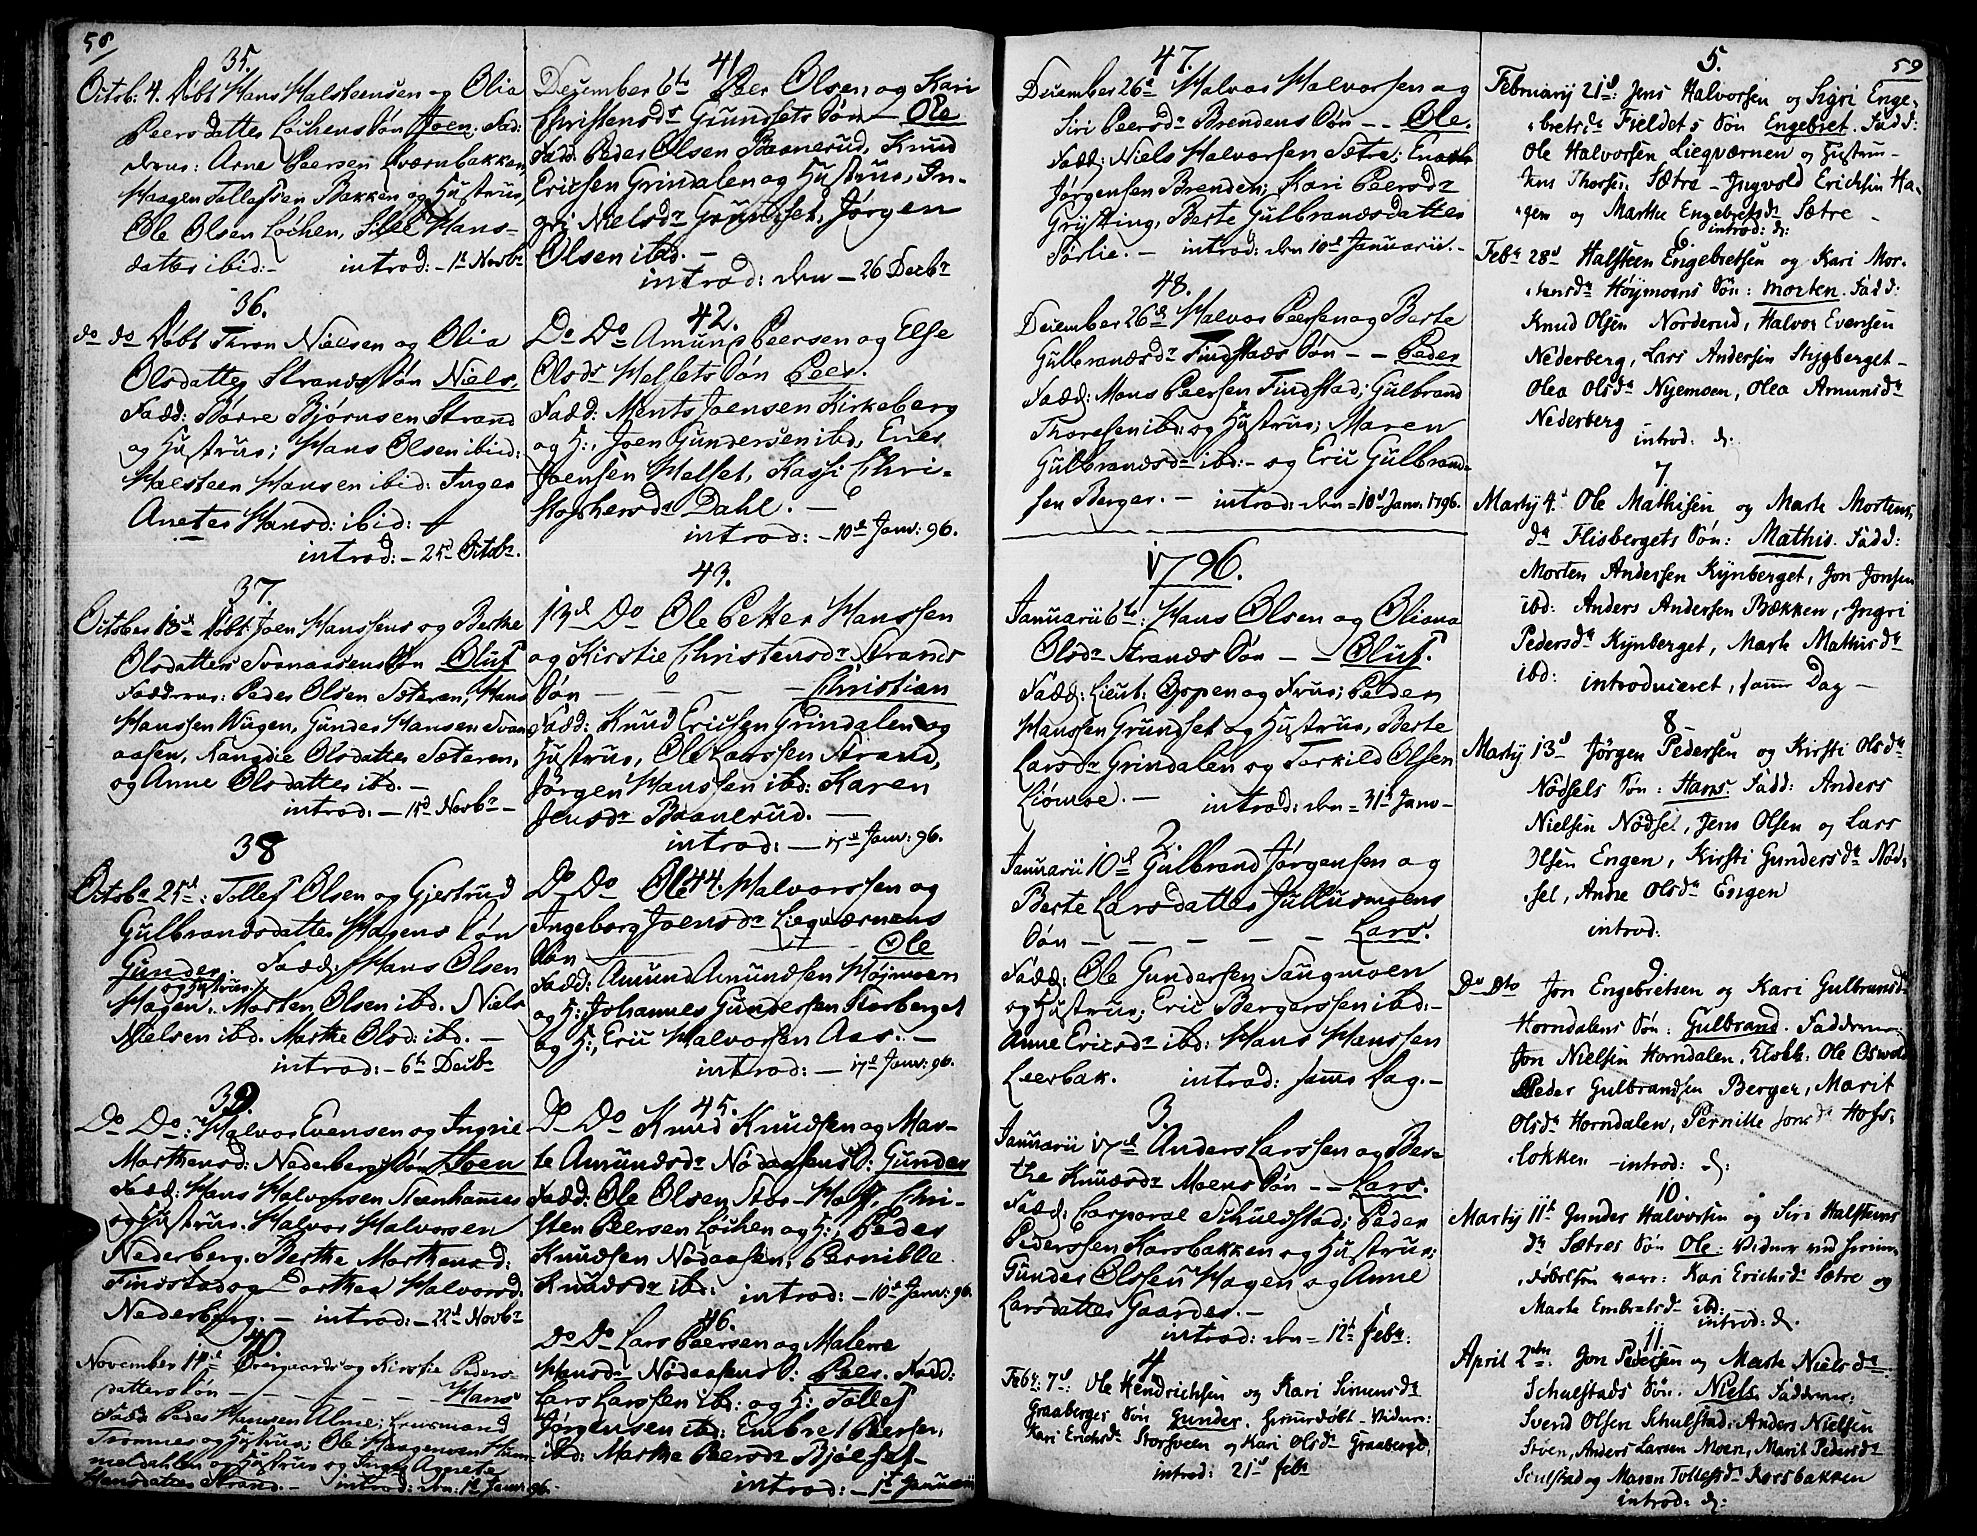 58
35.
Octob: 4. Døbt Hans Halsteensen og Olia
Peersdatter Løchens Søn Joen. Fad:
derne: Arne Peersen Kværnbakken,
Haagen Tollefsen Bakken og Hustrue,
Ole Olsen Løchen, Hans-
datter ibid:- introd:- 1t Novbr
36.
do do Døbt Thron Nielsen og Olia
Olsdatter Strands Søn Niels.
Fadd: Børre Bjørnsen Strand
og Hustrue; Hans Olsen ibid:
Halsteen Hansen ibid: Inger
Anetes Hansd: ibid:
introd:- 25d Octobr.
37.
October 18d Døbt Joen Hanssens og Berthe
Olsdatters Svenaasens Søn Oluf
Fadderne: Peder Olsen Sæteren, Hans
Hanssen Hugen, Gunder Hansen Svan
aasen, Rangdie Olsdatter Sæteren,
og Anne Olsdatter ibd.-
introd:- 15d Novbr-
38
Octobr 25d: Tollef Olsen og Gjertrud
Gulbrandsdatter Hagens Søn
Gunder. Fadd: Hans Olsen
og Hustrue
Hagen. Morten Olsen ibd. Niels
Nielsen ibd. Marthe Olsd: ibd.-
introd:- 6t Decbr
39.
Do Do: Halvor Evensen og Ingrie
Marthensd: Nederbergs Søn Joen
Fadd: Hans Halvorsen Steenhammer
og Hustrue. Halvor Halvorsen
Nederberg. Berthe Marthensd:
Findstad og Dorthea Halvorsd.
Nederberg.- introd:- 22d Novbr
40
November 14d og Kirstie Peders-
datters Søn - - - - Hans
Fadd Peder Hansen Alme;
Tromnes og Hustrue; Ole Haagensen Stam
meldahlen og Hustrue og Agnete
Hansdatter Strand.- introd: den 1t Janr: 96.
41
December 6te Peer Olsen og Kari
Christensdr Grundsets Søn - Ole
Fadd: Peder Olsen Baanerud, Knud
Ericsen Grindalen og Hustrue, In-
gri Nielsdr Grundset, Jørgen
Olsen ibd.-
introd: den - 26 Decbr
42.
Do Do Amund Peersen og Else
Olsdr Helsets Søn Peer.
Fadd: Ments Joensen Kirkeberg
og H:, Joen Gundersen ibd, Ener
Joensen Helset, Kassi Chri-
stophersdr Dahl.-
introd:- 10d Janr: 96.
43.
13d Do Ole Petter Hanssen
og Kirstie Christensdr Strands
Søn - - - - Christian
Fadd: Knud Ericsen Grindalen og
Hustrue, Ole Larssen Strand,
Jørgen Hanssen ibd: Karen
Jensdr Baanerud.-
introd:- 17d Janr: 96.
44.
Do Do Ole Halvorssen og
Ingeborg Joensdr Liegværnens
Søn - Ole
Fadd: Amund Amundsen Høimoen
og H:, Johannes Gundersen Storberget
og H:, Eric Halvorsen Aas.-
introd:- 17d Janr: 96.
45.
Do Do Knud Knudsen og Mar-
te Amundsdr Nødaasens S: Gunder
Fadd: Ole Olsen Stor-Hoff, Chri-
sten Peersen Løchen og H:, Peder
Knudsen Nødaasen, Pernille
Knudsdr ibd: introd:- 10d Janr: 96.
46.
Do Do Lars Peersen og Malene
Hansdr Nødaasens S: Peer. Fadd:
Lars Larssen ibd: og H: Tollef
Jørgensen ibd: Embret Peersen
ibd: Marthe Peersdr Bjølset-
introd:- 1t Januarii
47.
December 26d Halvor Halvorsen og
Siri Peersdr Brendens Søn - - Ole.
Fadd: Niels Halvorsen Sætre; Enoch
Jørgensen Brenden; Kari Peersdr
Grysting, Berte Gulbrandsdatter
Sørlie.- introd: den 10d Januarii.-
48.
December 26d Halvor Peersen og Berte
Gulbrandsdr Findstads Søn - - Peder
Fadd: Mons Peersen Findstad; Gulbrand
Thoresen ibd: og Hustrue; Maren
Gulbrandsdr ibd:- og Eric Gulbrand-
sen Berger.- introd: den 10d Janr: 1796.
1796.
Januarii 6te: Hans Olsen og Oliana
Olsdr Strands Søn - - Oluf.
Fadd: Lieut: Oppen og Frue; Peder
Hanssen Grundset og Hustrue, Berte
Larsdr Grindalen og Torkild Olsen
Liømoe.- introd: den 31t Janr-
2.
Januarii 10d Gulbrand Jørgensen og
Berte Larsdatter Jullusmoens
Søn - - - - - Lars.
Fadd: Ole Gundersen Saugmoen
og Hustrue; Eric Bergerssen ibd:-
Anne Ericsdr ibd: Hans Hanssen
Leerbak. introd: samme Dag.-
3.
Januarii 17d Anders Larssen og Ber-
the Knudsdr Moens Søn - - Lars.
Fadd: Corporal Schulstad; Peder
Pederssen Korsbakken og Hustrue;
Gunder Olssen Hagen og Anne
Larsdatter Gaarder.-
introd: den 12t febr:
4.
Febr: 7d: Ole Hendrichsen og Kari Simensdr
Graaberget Søn Gunder. Hiemdøbt - Vidner:
Kari Erichsdr Storsveen og Kari Olsdr Graaberget.
introd: 21d febr
59
5.
Februarij 21d: Jens Halvorsen og Sigri Enge-
bretsdr Fieldets Søn Engebret. Fadd:
Ole Halvorsen Liegværnen og Hustrue-
Jens Thorsen Sætre - Ingvold Erichsen Ha-
gen og Marthe Engebretsdr Sætre -
introd: d:
6.
Febr 28d Halsteen Engebretsen og Kari Mor-
tensdr Høymoens Søn: Morten. Fadd:
Knud Olsen Norderud, Halvor Evensen
Nederberg, Lars Andersen Stygberget-
Olea Olsdr Nyemoen, Olea Amunsdr
Nederberg introd: d:
7
Martij 4d Ole Mathisen og Marte Mortens-
dr Flisbergets Søn: Mathis. Fadd:
Morten Andersen Kynberget, Jon Jonsen
ibd: Anders Andersen Bækken, Ingri
Pedersdr Kynberget, Marte Mathisdr
ibd: introduceret, samme Dag -
8
Martij 13d Jørgen Pedersen og Kirsti Olsdr
Nødsels Søn: Hans. Fadd: Anders
Nielsen Nødsel, Jens Olsen og Lars
Olsen Engen, Kirsti Gundersdr Nød-
sel, Anne Olsdr Engen
introd:
9
Do Dto Jon Engebretsen og Kari Gulbransdr
Horndalens Søn: Gulbrand. Fadderne:
Jon Nielsen Horndalen, Klokk: Ole Oswold
Peder Gulbrandsen Berger, Marit
Olsdr Horndalen, Pernille Jonsdr Horns-
løkken - introd: d:
10.
Martij 11t Gunder Halvorsen og Siri Halstens
dr Sætres Søn Ole. Vidner ved Hiemme-
døbelsen vare: Kari Erichsdr Sætre og
Marte Embretsdr ibd:
introd: d.
11.
April 2den: Jon Pedersen og Marte Nielsdr
Schulstads Søn. Niels Fadderne:
Svend Olsen Schulstad: Anders Nielsen
Støen, Anders Larsen Moen, Marit Pedersdr
Sculstad og Maren Tollefsdr Korsbakken
introd: d: